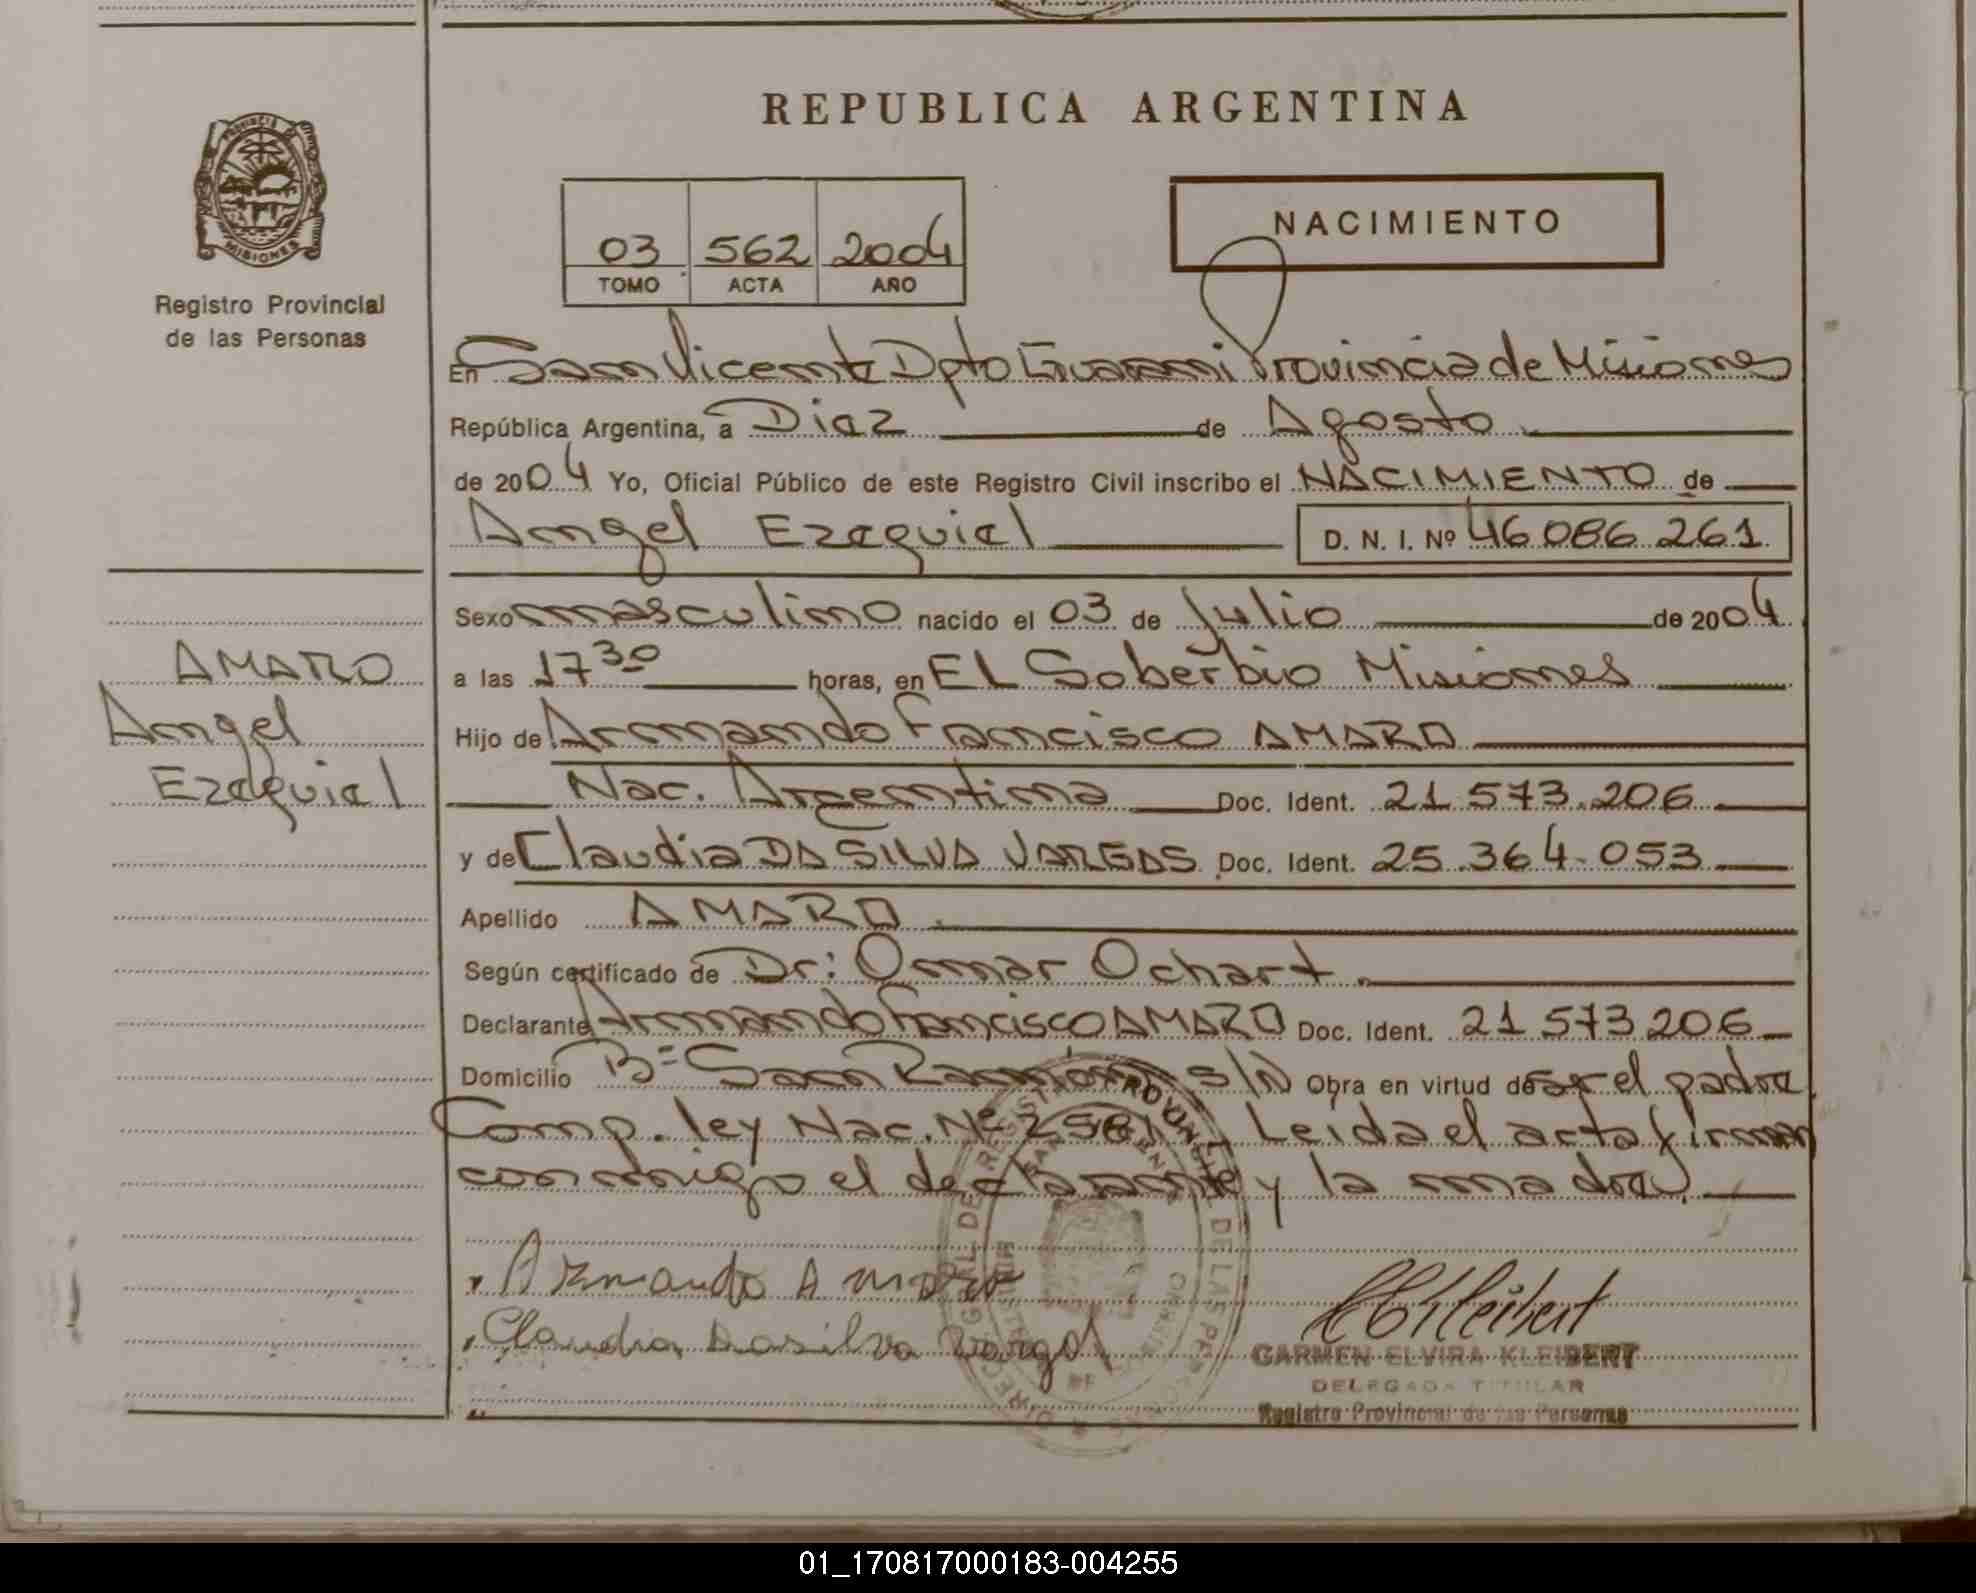 REPUBLICA ARGENTINA
PROVINCIA DE MISIONES
Registro Provincial
de las Personas
03 562 2004
TOMO ACTA AÑO
NACIMIENTO
En San Vicente Dpto Guarani Provincia de Misiones
República Argentina, a Diez de Agosto
de 2004 Yo, Oficial Público de este Registro Civil inscribo el NACIMIENTO de
Angel Ezequiel D. N. I. Nº 46 086 261
Sexo masculino nacido el 03 de Julio de 2004
AMARO
Angel
Ezequiel
a las 17 30 horas, en EL Soberbio Misiones
Hijo de Armando Francisco AMARO
Nac. Argentina Doc. Ident. 21 573.206
y de Claudia DA SILVA VARGAS Doc. Ident. 25.364.053
Apellido AMARO
Según certificado de Dr: Omar Ochart.
Declarante Armando Francisco AMARO Doc. Ident. 21 573 206
Domicilio Bº San Ramón s/N Obra en virtud de ser el padre
Comp. ley Nac. Nº Leida el acta firman
conmigo el declarante y la madre.
Armando Amaro
Claudia Dasilva Vargas
CKleibert
CARMEN ELVIRA KLEIBERT
DELEGADA TITULAR
Registro Provincial de las Personas
01_170817000183-004255